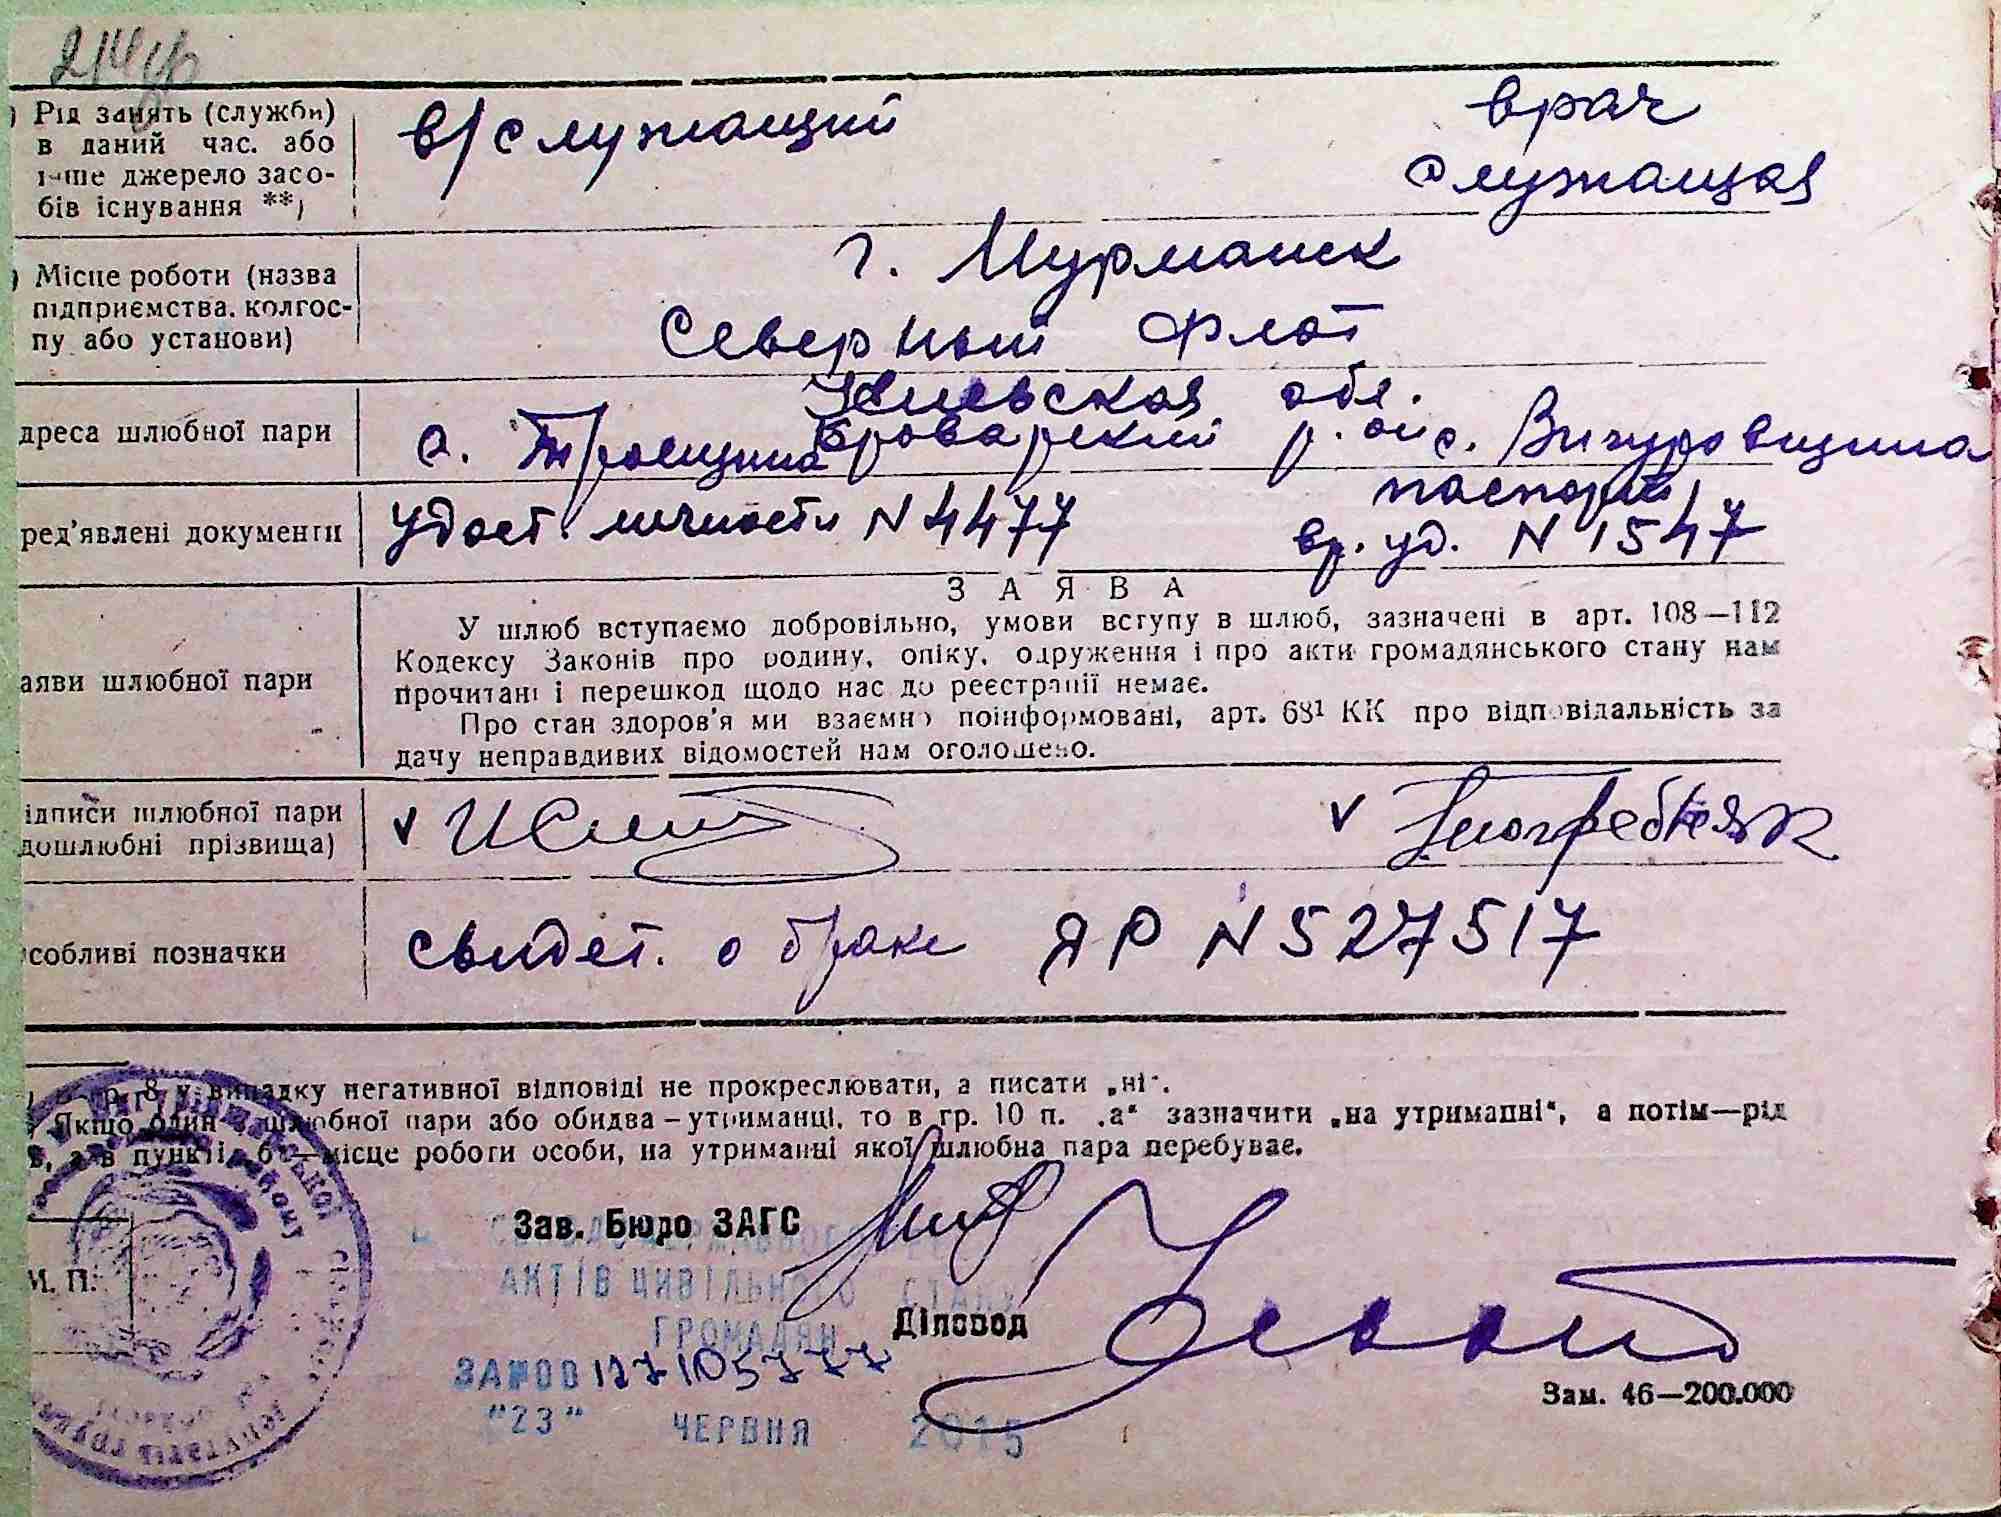 ) Рід занять (служби) в/служащий врач
в даний час. або служащая
інше джерело засо-
бів існування **)
) Місце роботи (назва г. Мурманск
підприємства, колгос- Северный Флот
пу або установи)
Киевская обл.
дреса шлюбної пари с. Троещина Броварский р. он с. Вигуровщина
паспорт
ред'явлені документи Удост. личности N 4477 вр. уд. N 1547
ЗАЯВА
У шлюб вступаємо добровільно, умови вступу в шлюб, зазначені в арт. 108—112
Кодексу Законів про родину, опіку, одруження і про акти громадянського стану нам
аяви шлюбної пари
прочитані і перешкод щодо нас до реєстрації немає.
Про стан здоров'я ми взаємно поінформовані, арт. 68¹ КК про відповідальність за
дачу неправдивих відомостей нам оголошено.
ідписи шлюбної пари
дошлюбні прізвища)
собливі позначки свидет. о браке ЯР N 527517
гр. 8 у випадку негативної відповіді не прокреслювати, а писати „ні".
Якщо один з шлюбної пари або обидва – утриманці, то в гр. 10 п. „а" зазначити „на утриманні", а потім—рід
а в пункті б—місце роботи особи, на утриманні якої шлюбна пара перебуває.
Зав. Бюро ЗАГС
АКТІВ ЦИВІЛЬНОГО СТАНУ
М. П.
ГРОМАДЯН
Діловод
"23" ЧЕРВНЯ 2015
Зам. 46—200.000